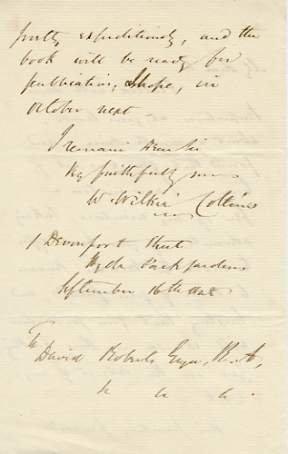 pretty expeditiously, and the
book will be ready for
publication, I hope, in
October next
I remain Dear Sir
Very faithfully yours
W. Wilkie Collins
1 Devonport Street
Hyde Park Gardens
September 16th
To
David Roberts Esqre, R.A,
&c &c &c.